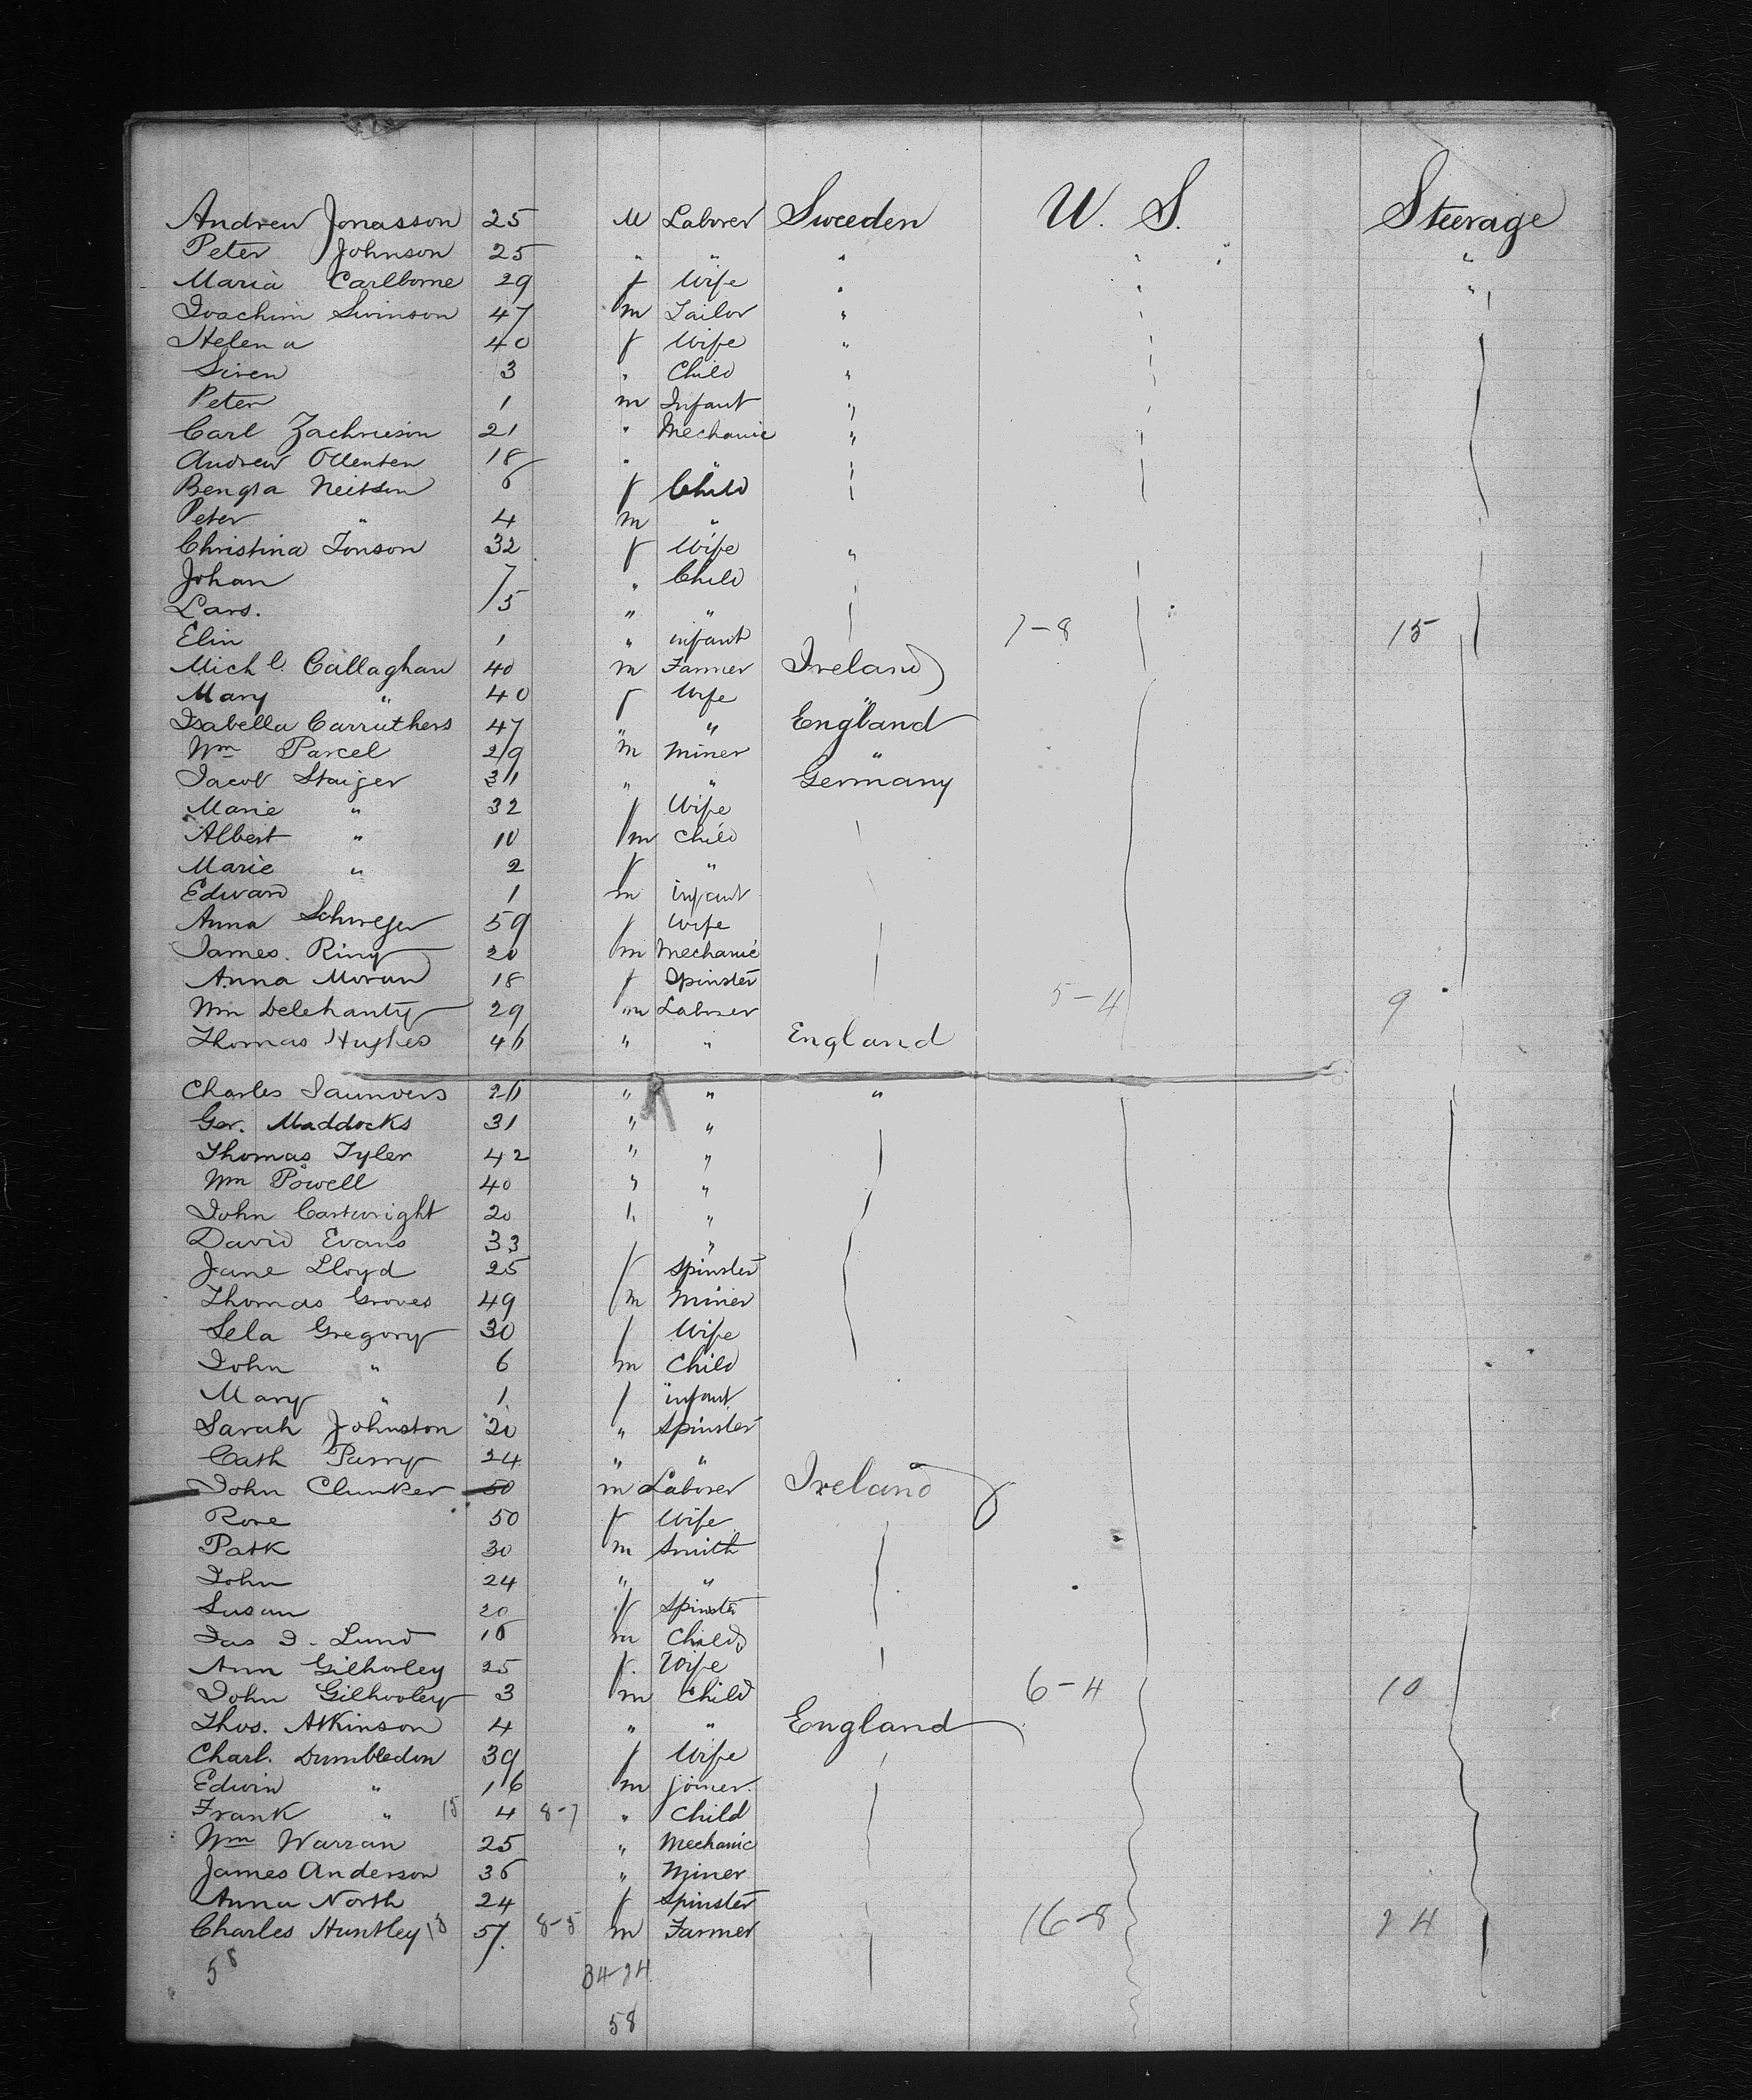 Andrew Jonasson 25 M Laborer Sweeden U. S. Steerage
Peter Johnson 25 " " " " "
Maria Carlborne 29 f Wife " " "
Joachim Swinson 47 m Tailor "
Helena 40 f Wife "
Siren 3 " Child "
Peter 1 m Infant "
Carl Zachrieson 21 " Mechanic "
Andrew Ollenten 18 " "
Bengta Neilson 6 f Child
Peter " 4 m "
Christina Jonson 32 f Wife "
Johan 7 " Child
Lars. 5 " "
Elin 1 " infant 7-8 15
Michl. Callaghan 40 m Farmer Ireland
Mary " 40 f Wife "
Isabella Carruthers 47 " " England
Wm Parcel 29 m Miner "
Jacob Staiger 31 " " Germany
Marie " 32 f Wife
Albert " 10 m Child
Marie " 2 f "
Edward 1 m infant
Anna Schweger 59 f Wife
James. Ring 20 m Mechanic
Anna Moran 18 f Spinster
Wm Delehanty 29 m Laborer 5-4 9
Thomas Hughes 46 " " England
Charles Saunders 26 " " "
Geo. Maddocks 31 " "
Thomas Tyler 42 " "
Wm Powell 40 " "
John Cartwright 20 " "
David Evans 33 "
Jane Lloyd 25 f Spinster
Thomas Groves 49 m Miner
Lela Gregory 30 f Wife
John " 6 m Child
Mary " 1 f infant
Sarah Johnston 20 " Spinster
Cath Parry 24 " "
John Clunker 50 m Laborer Ireland
Rose 50 f Wife
Patk 30 m Smith
John 24 " "
Susan 20 f Spinster
Jas J. Lund 16 m Child
Ann Gilhorley 25 f. Wife
John Gilhooley 3 m Child 6-4 10
Thos. Atkinson 4 " " England
Charl. Dumbledon 39 f Wife
Edwin " 16 m joiner
Frank " 15 4 8-7 " Child
Wm Warran 25 " Mechanic
James Anderson 36 " Miner
Anna North 24 f Spinster
Charles Huntley 13 57. 8-5 m Farmer 16-8 24
58 34-24
58